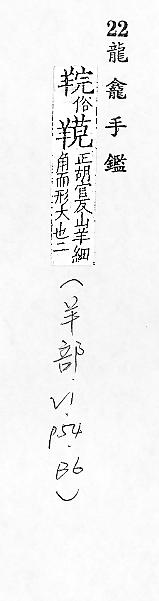 22 龍龕手鑑
羦俗
正胡官反山羊細
角而形大也二
(羊部.VI.p54.B6)